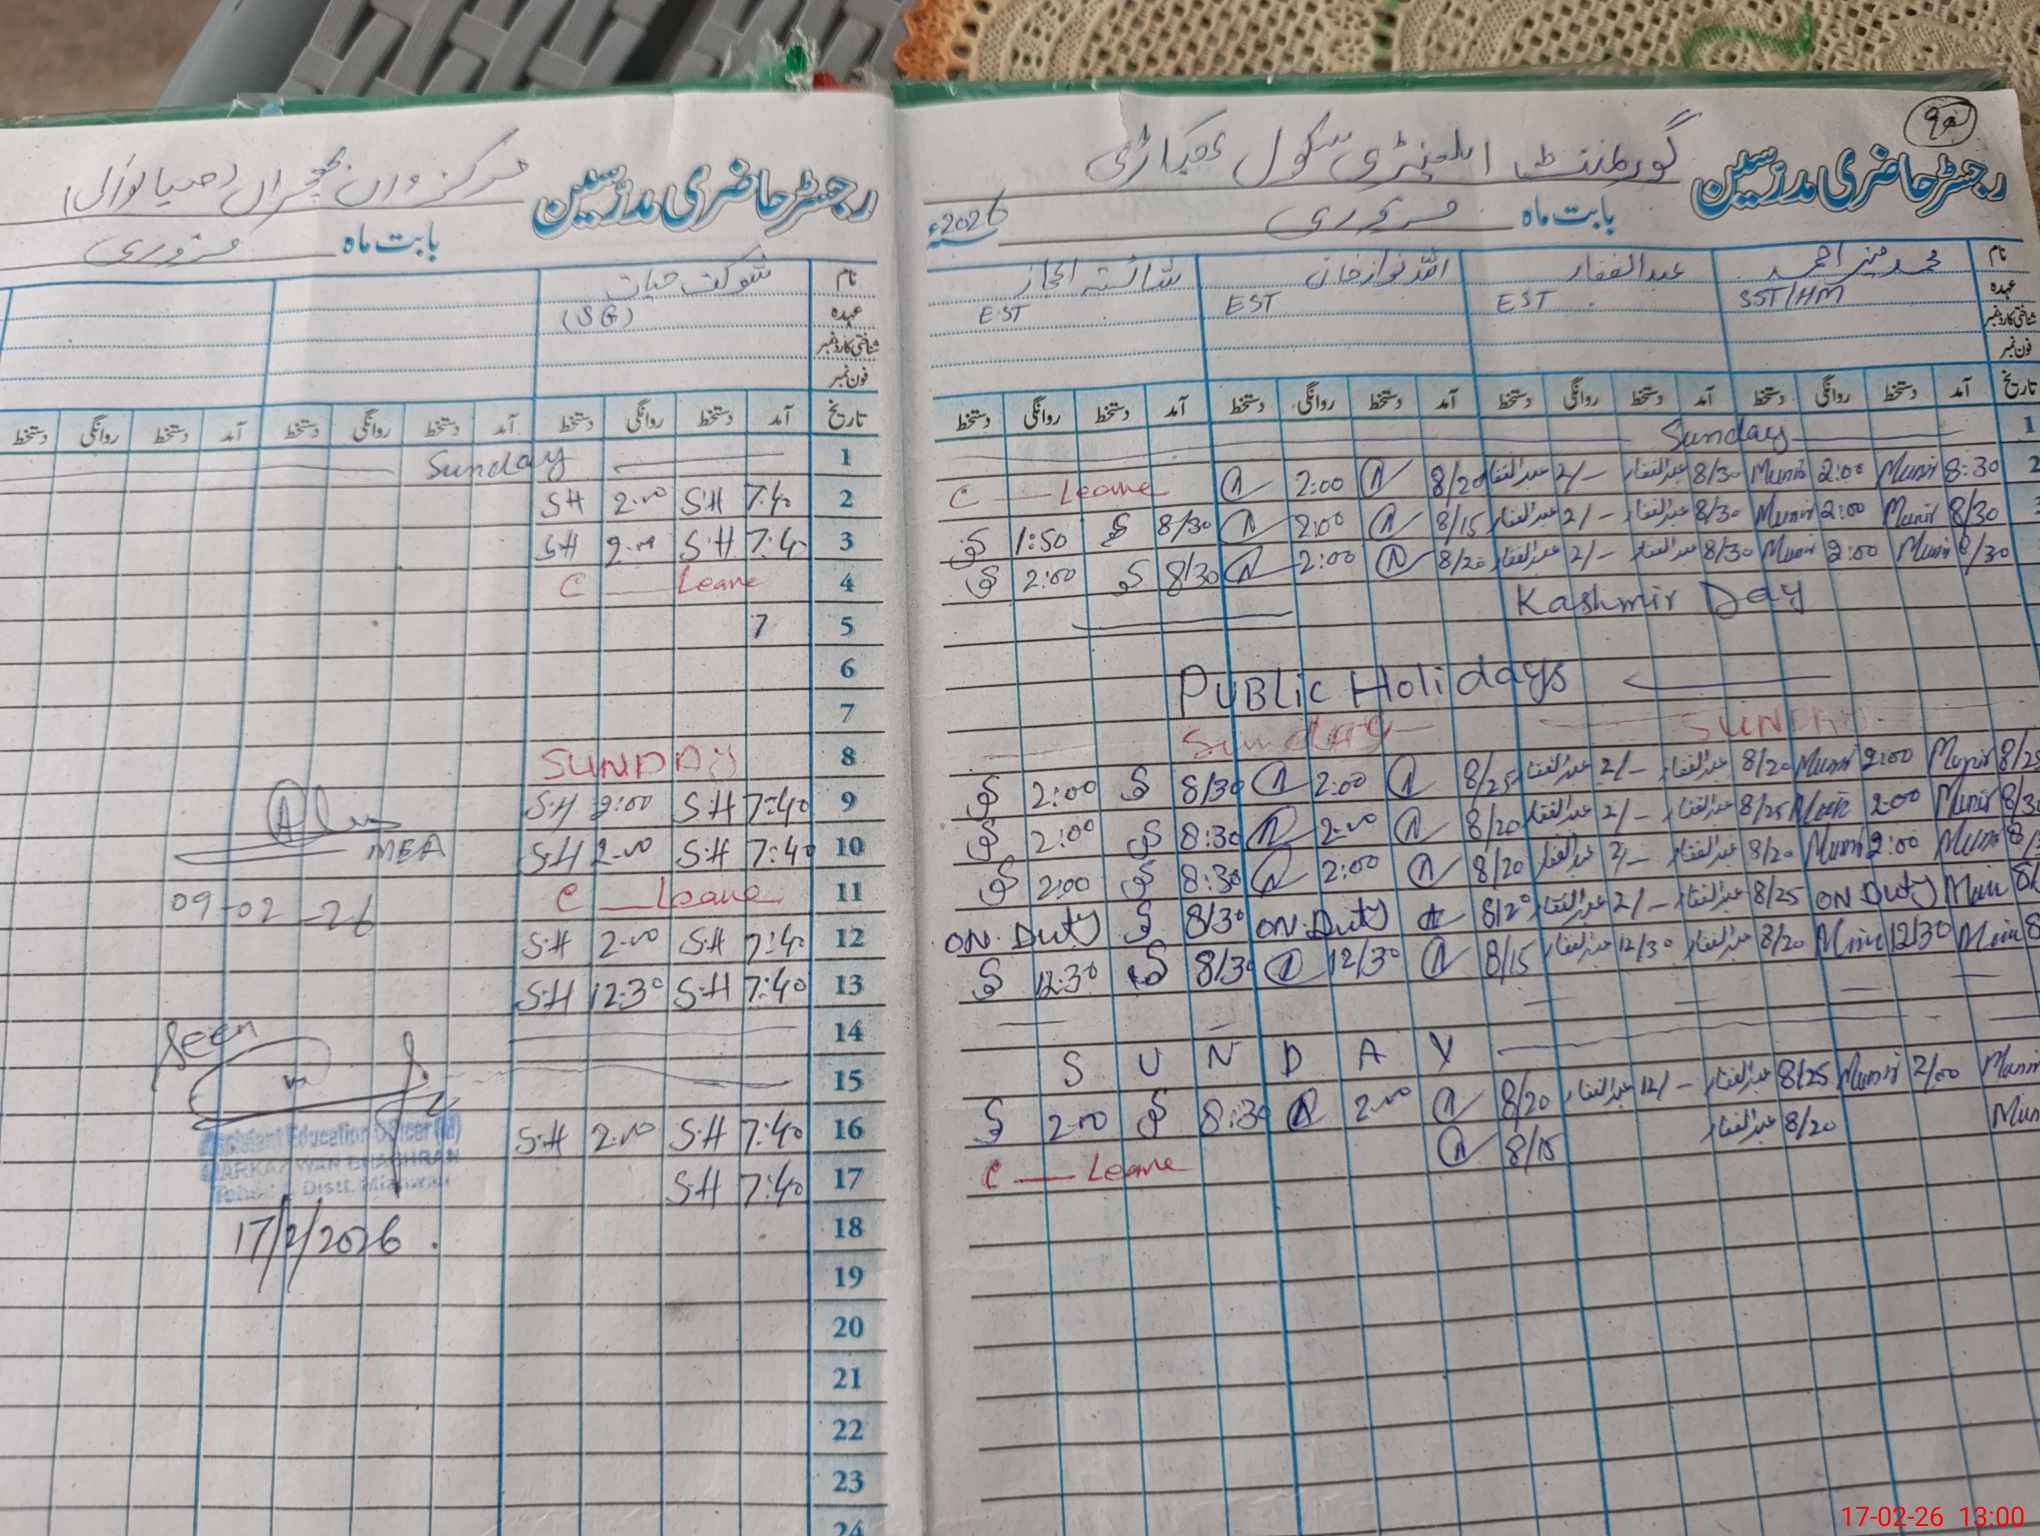 رجسٹر حاضری مدرسین گورنمنٹ ایلیمنٹری سکول
بابت ماہ فروری سنہ 2026ء
نام محمد منیر احمد عبدالغفار اللہ نواز خان شائستہ اعجاز
عہدہ SST/HM EST EST EST
شناختی کارڈ نمبر
فون نمبر
تاریخ آمد دستخط روانگی دستخط آمد دستخط روانگی دستخط آمد دستخط روانگی دستخط آمد دستخط روانگی دستخط
1 Sunday
2 8:30 Munir 2:00 Munir 8/30 عبدالغفار 2/- عبدالغفار 8/20 2:00 C Leave
8/30 Munir 2:00 Munir 8/30 عبدالغفار 2/- عبدالغفار 8/15 2:00 8/30 1:50
8/30 Munir 2:00 Munir 8/30 عبدالغفار 2/- عبدالغفار 8/20 2:00 8/30 2:00
Kashmir Day
PUBLIC Holidays
SUNDAY Sunday
8/25 Munir 2:00 Munir 8/20 عبدالغفار 2/- عبدالغفار 8/25 2:00 8/30 2:00
Munir 2:00 Munir 8/25 عبدالغفار 2/- عبدالغفار 8/20 2:00 8:30 2:00
Munir 2:00 Munir 8/20 عبدالغفار 2/- عبدالغفار 8/20 2:00 8:30 2:00
Munir ON Duty 8/25 عبدالغفار 2/- عبدالغفار 8/20 ON. Duty 8/30 ON. Duty
Munir 12/30 Munir 8/20 عبدالغفار 12/30 عبدالغفار 8/15 12/30 8/30 12:30
S U N D A Y
Munir 2/00 Munir 8/25 عبدالغفار 12/- عبدالغفار 8/20 2:00 8:30 2:00
Mun 8/20 عبدالغفار 8/15 C Leave
رجسٹر حاضری مدرسین مرکز واں بھچراں (میانوالی)
بابت ماہ فروری
نام شوکت حیات
عہدہ (SG)
شناختی کارڈ نمبر
فون نمبر
تاریخ آمد دستخط روانگی دستخط آمد دستخط روانگی دستخط آمد دستخط روانگی دستخط
1 Sunday
2 7:40 S.H 2:00 S.H
3 7:40 S.H 2:00 S.H
4 C Leave
5 7
6
7
8 SUNDAY
9 7:40 S.H 2:00 S.H
10 7:40 S.H 2:00 S.H MEA
11 C Leave 09-02-26
12 7:40 S.H 2:00 S.H
13 7:40 S.H 12:30 S.H
14 Seen
15
16 7:40 S.H 2:00 S.H Assistant Education Officer (M)
MARKAZ WAN BHACHRAN
17 7:40 S.H Tehsil & Distt. Mianwali
18 17/2/2026.
19
20
21
22
23
24
17-02-26 13:00